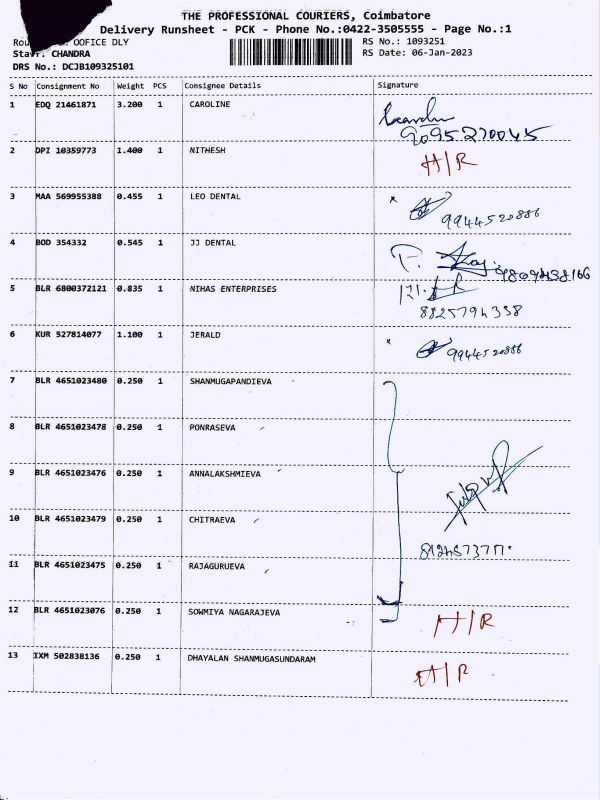 THE PROFESSIONAL COURIERS, Coimbatore
Delivery Runsheet - PCK - Phone No.:0422-3505555 - Page No.:1
OOFICE DLY
RS No.: 1093251
CHANDRA
RS Date: 06-Jan-2023
DRS No.: DCJB109325101
S No Consignment No Weight PCS Consignee Details Signature
1 EDQ 21461871 3.200 1 CAROLINE
9095270045
2 DPI 10359773 1.400 1 NITHESH H/R
3 MAA 569955388 0.455 1 LEO DENTAL x
9944520886
4 BOD 354332 0.545 1 JJ DENTAL
5 BLR 6800372121 0.835 1 NIHAS ENTERPRISES
8825794338
6 KUR 527814077 1.100 1 JERALD x 9944520886
7 BLR 4651023480 0.250 1 SHANMUGAPANDIEVA
8 BLR 4651023478 0.250 1 PONRASEVA
9 BLR 4651023476 0.250 1 ANNALAKSHMIEVA
10 BLR 4651023479 0.250 1 CHITRAEVA
11 BLR 4651023475 0.250 1 RAJAGURUEVA
12 BLR 4651023076 0.250 1 SOWMIYA NAGARAJEVA H/R
13 IXM 502838136 0.250 1 DHAYALAN SHANMUGASUNDARAM H/R